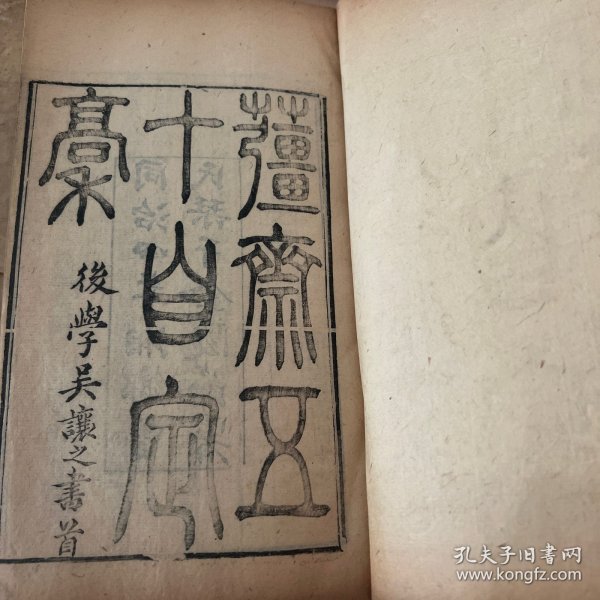 薑齋五
十自定
稾
後學吳讓之書首
孔夫子旧书网
www.kongfz.com